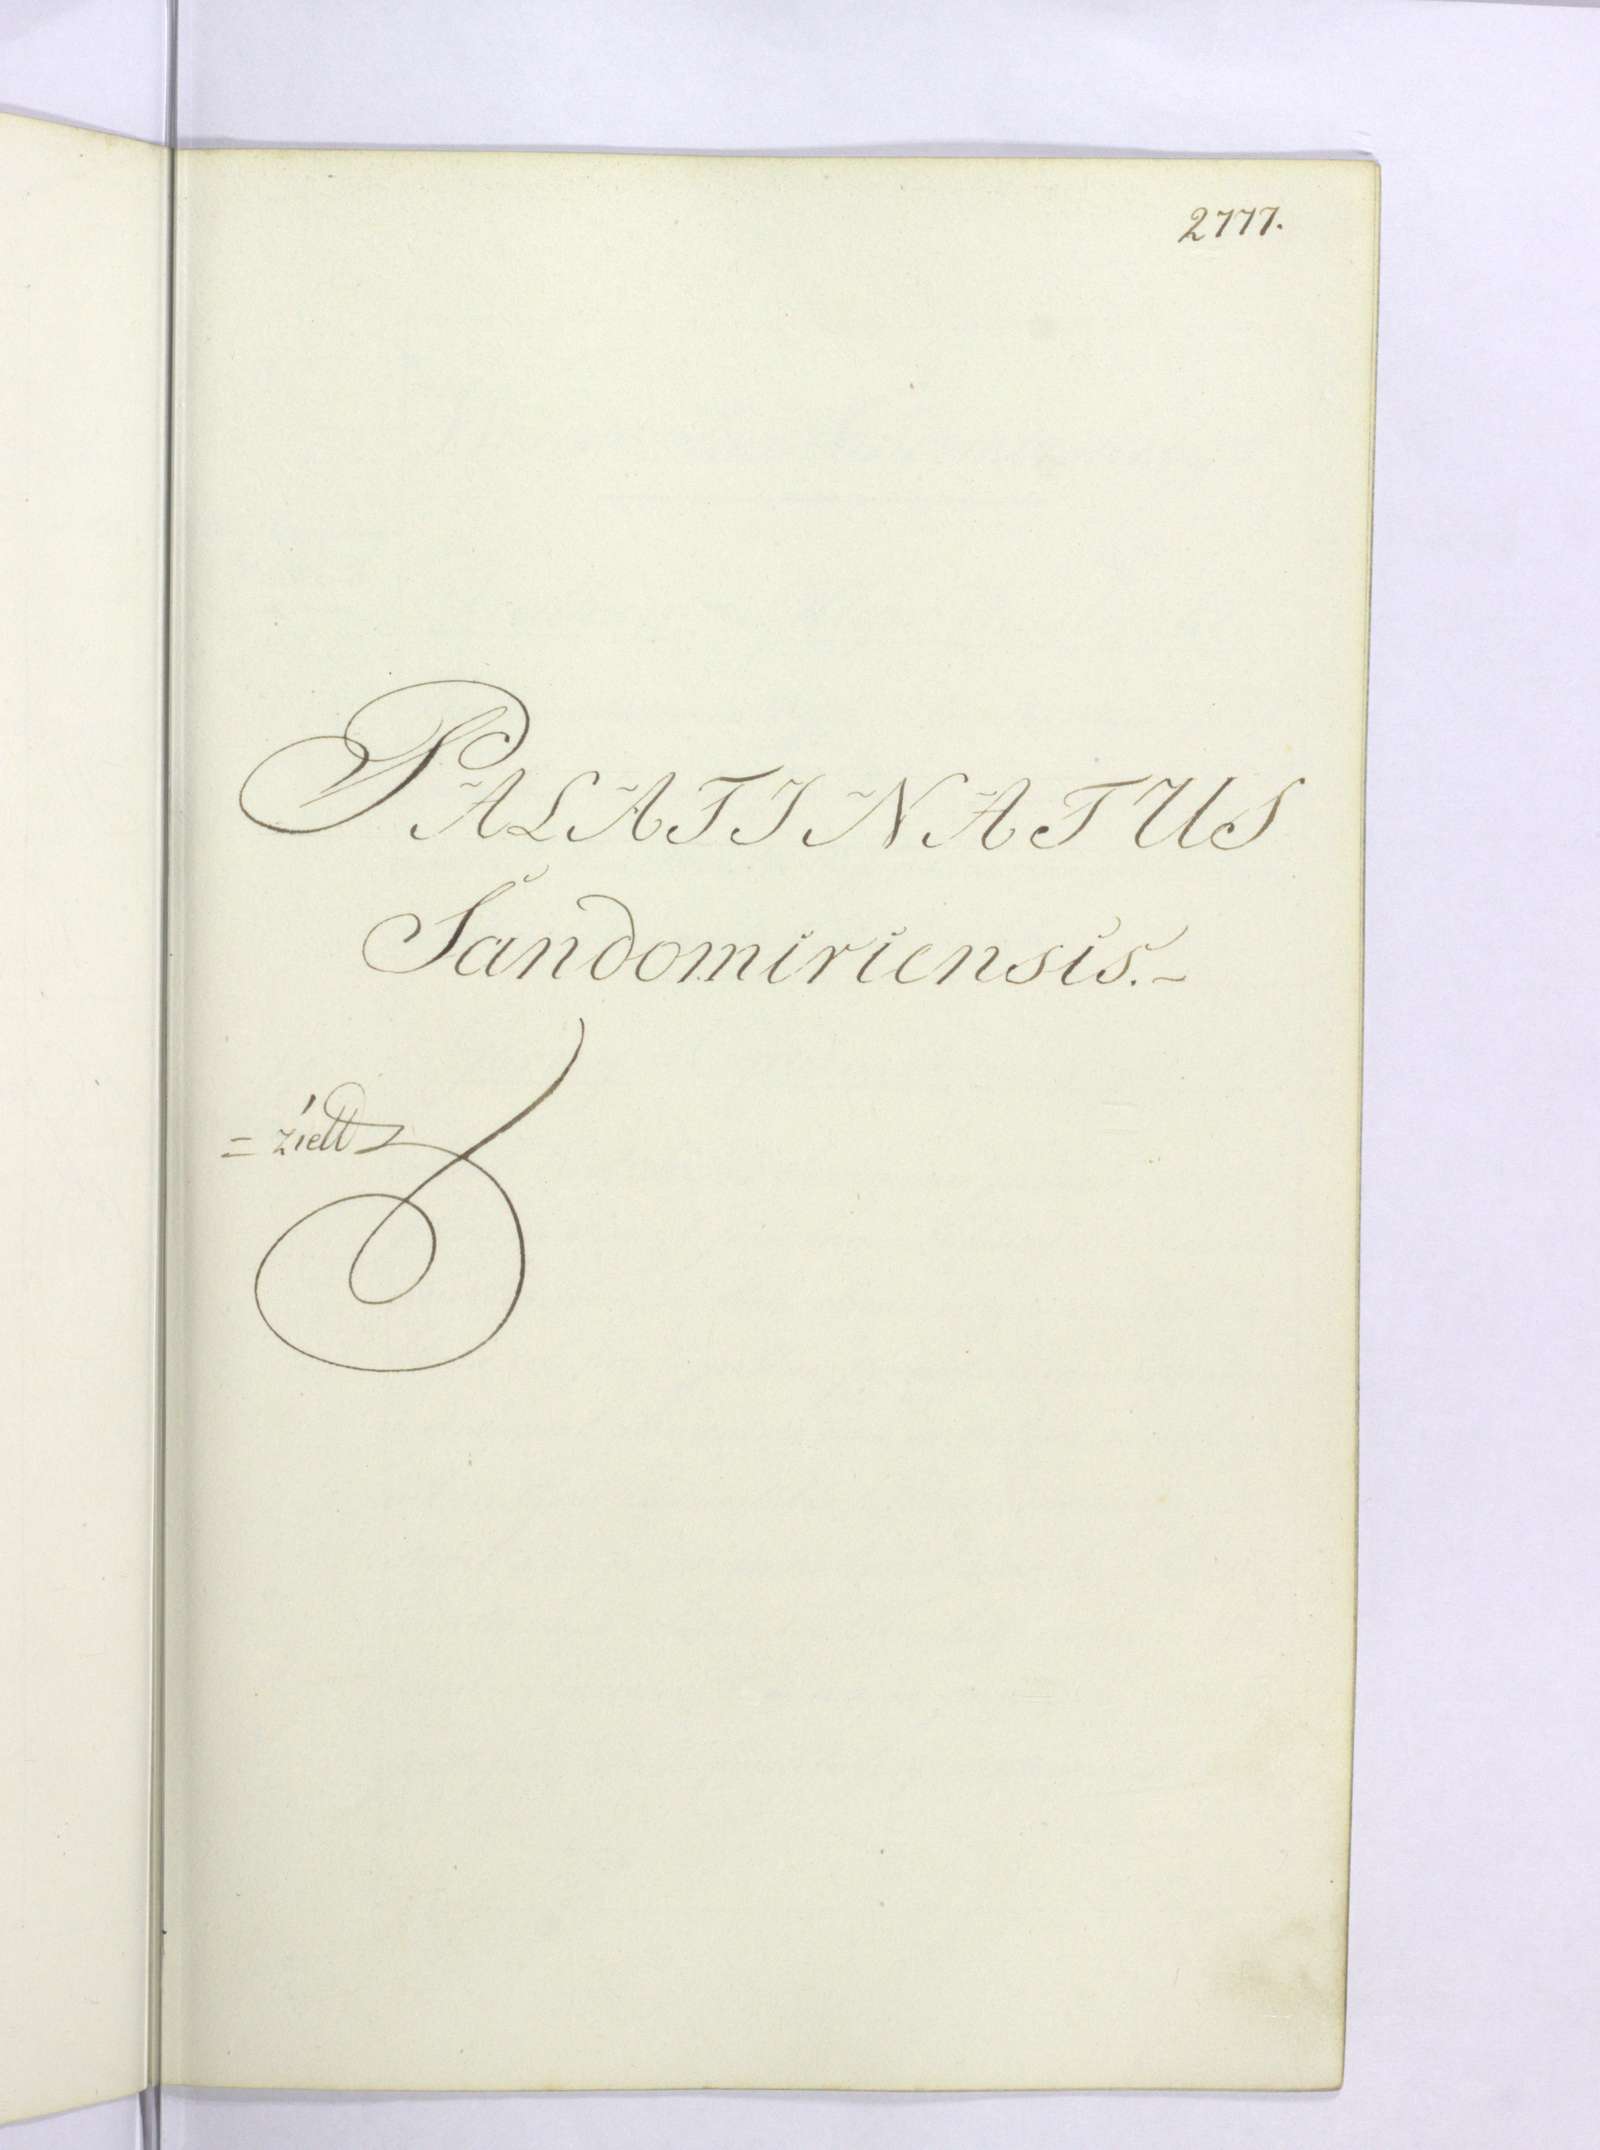 2777.
PALATINATUS
Sandomiriensis.-
= zielt